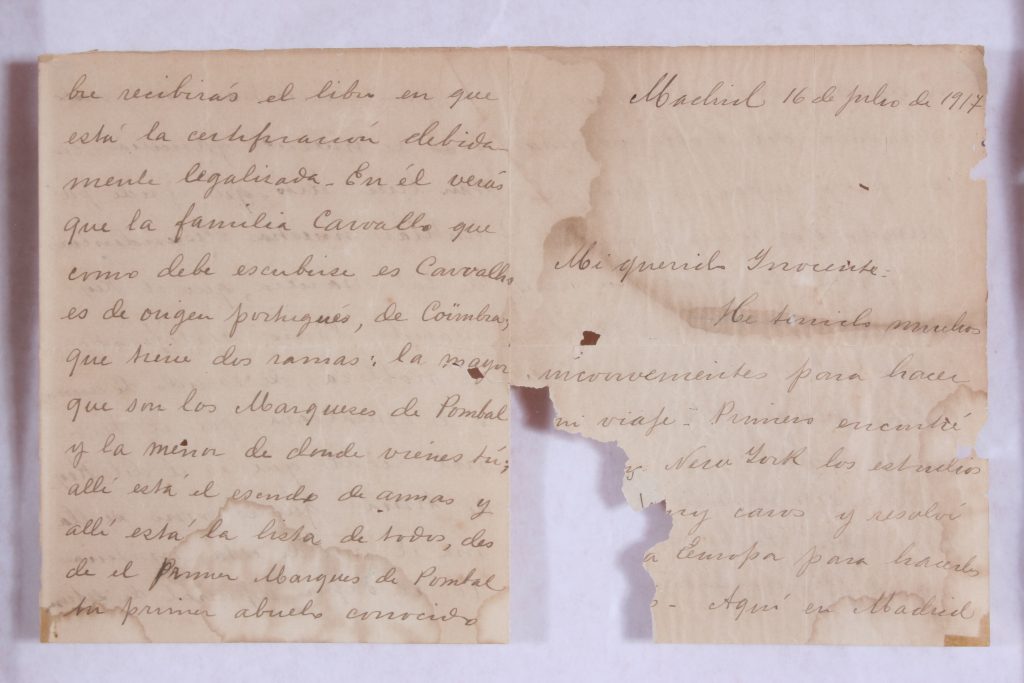 Madrid 16 de julio de 1917
Mi querido Inocente:
He tenido muchos
inconvenientes para hacer
mi viaje - Primero encontré
New York los estudios
caros y resolví
a Europa para hacerlos
- Aquí en Madrid
bre recibirás el libro en que
está la certificación debida
mente legalizada - En él verás
que la familia Carvallo que
como debe escribirse es Carvalho
es de origen portugués, de Coïmbra,
que tiene dos ramas: la mayor
que son los Marqueses de Pombal
y la menor de donde vienes tú;
allí está el escudo de armas y
allí está la lista de todos, des
de el Primer Marques de Pombal
tu primer abuelo conocido